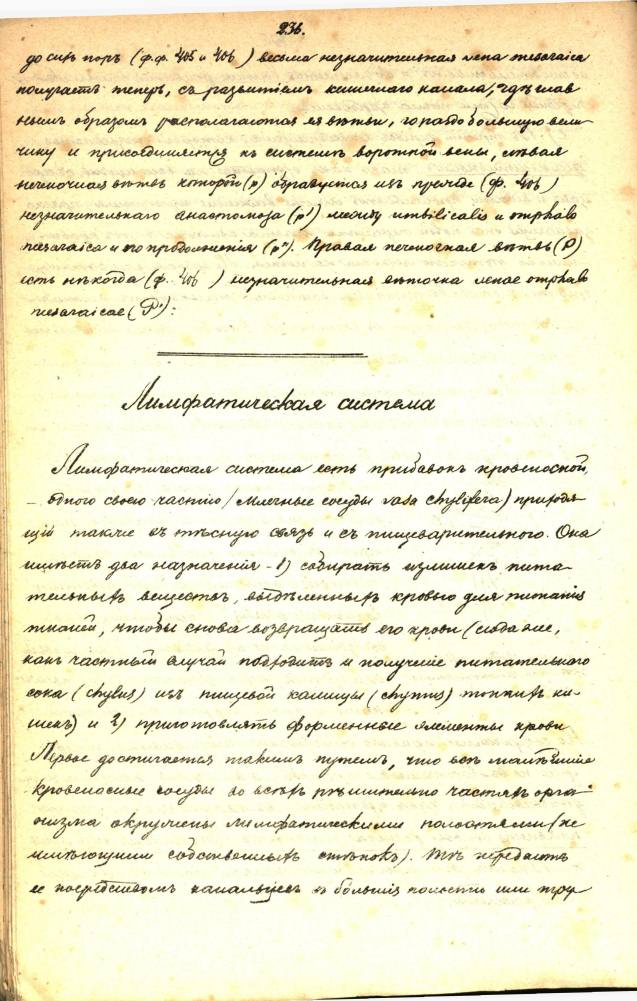 236.
до сихъ поръ (ф.ф. 405 и 406) весьма незначительная vena mesaraica
получаетъ теперь, съ развитіемъ кишечнаго канала, гдѣ глав
нымъ образомъ располагаются ея вѣтви, гораздо большую вели
чину и присоединяется къ системѣ воротной вены, лѣвая
печеночная вѣтвь которой (p) образуется изъ прежде (ф. 406)
незначительнаго анастомоза (p') между umbilicalis и omphalo
mesaraica и его продолженія (p"). Правая печеночная вѣтвь (P)
есть нѣкогда (ф. 406) незначительная вѣточка venae omphalo
mesaraicae (P'):
Лимфатическая система
Лимфатическая система есть прибавокъ кровеносной,
одною своею частію (млечные сосуды vasa chylifera) приходя
щій также въ тѣсную связь и съ пищеварительного. Она
имѣетъ два назначенія - 1) собирать излишек пита-
тельныхъ веществъ, выдѣленныхъ кровью для питанія
тканей, чтобы снова возвращать его крови (сюда же,
какъ частный случай подходитъ и полученіе питательнаго
сока (chylus) изъ пищевой кашицы (chymus) тонкихъ ки-
шекъ) и 2) приготовлять форменные элементы крови
Первое достигается такимъ путемъ, что всѣ малѣйшіе
кровеносные сосуды во всѣхъ рѣшительно частяхъ орга-
низма окружены лимфатическими полостями (не
имѣющими собственныхъ стѣнокъ). Тѣ передаютъ
ее посредствомъ канальцевъ въ большія полости или тру